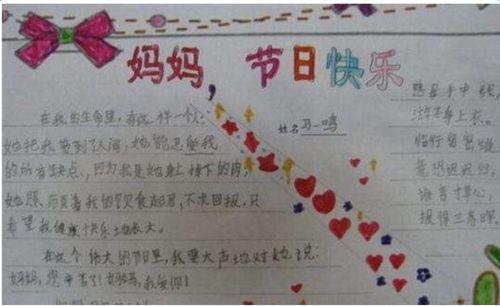 妈妈，节日快乐
姓名马一鸣
在我的生命里，有这样一个人：
她把我带到了人间，她能忍受我
的所有缺点，因为我是她身上掉下的肉，
她照顾着我的饮食起居，不求回报，只
希望我健康快乐地长大。
在这个伟大的节日里，我要大声地对她说：
妈妈，您辛苦了！妈妈，我爱你！
慈母手中线，
游子身上衣。
临行密密缝，
意恐迟迟归。
谁言寸草心，
报得三春晖